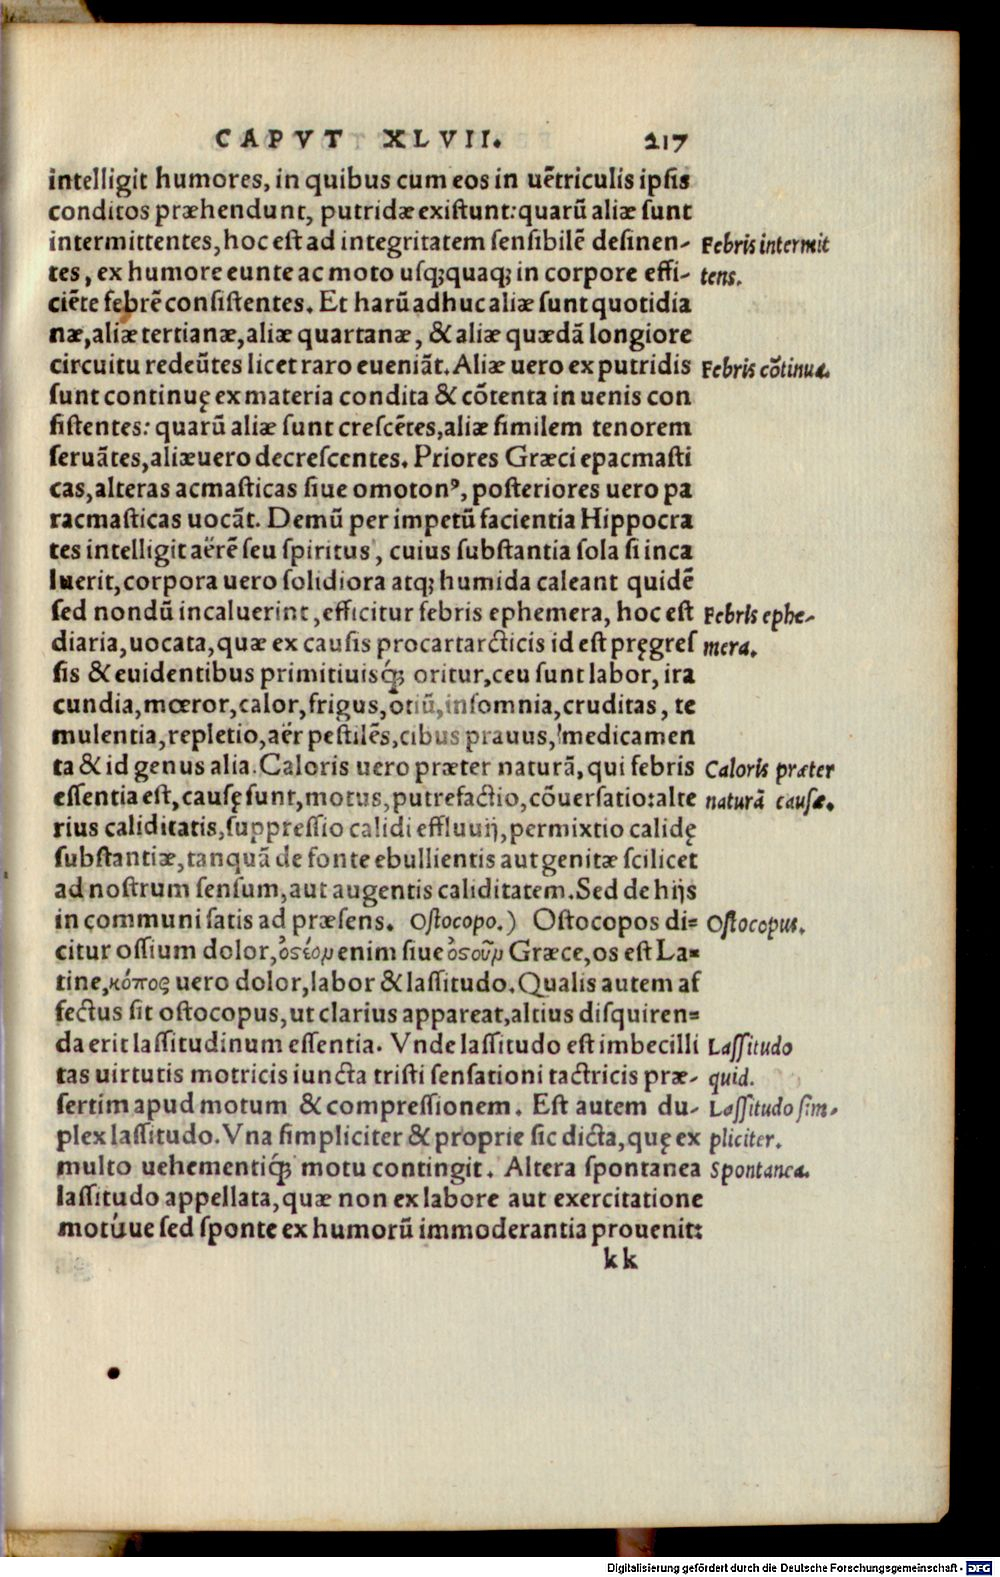 CAPVT XLVII. 217
intelligit humores, in quibus cum eos in uẽtriculis ipsis
conditos præhendunt, putridæ existunt: quarũ aliæ sunt
intermittentes, hoc est ad integritatem sensibilẽ desinen-
Febris intermit
tes, ex humore eunte ac moto usq; quaq; in corpore effi-
tens.
ciẽte febrẽ consistentes. Et harũ adhuc aliæ sunt quotidia
næ, aliæ tertianæ, aliæ quartanæ, & aliæ quædã longiore
circuitu redeũtes licet raro eueniãt. Aliæ uero ex putridis
Febris cõtinuæ.
sunt continuę ex materia condita & cõtenta in uenis con
sistentes: quarũ aliæ sunt crescẽtes, aliæ similem tenorem
seruãtes, aliæ uero decrescentes. Priores Græci epacmasti
cas, alteras acmasticas siue omotonꝰ, posteriores uero pa
racmasticas uocãt. Demũ per impetũ facientia Hippocra
tes intelligit aërẽ seu spiritus, cuius substantia sola si inca
luerit, corpora uero solidiora atq; humida caleant quidẽ
sed nondũ incaluerint, efficitur febris ephemera, hoc est
Febris ephe-
diaria, uocata, quæ ex causis procartarcticis id est pręgres
mera.
sis & euidentibus primitiuisq́; oritur, ceu sunt labor, ira
cundia, mœror, calor, frigus, otiũ, insomnia, cruditas, te
mulentia, repletio, aër pestilẽs, cibus prauus, medicamen
ta & id genus alia. Caloris uero præter naturã, qui febris
Caloris præter
essentia est, causę sunt, motus, putrefactio, cõuersatio: alte
naturã causæ.
rius caliditatis, suppressio calidi effluuij, permixtio calidę
substantiæ, tanquã de fonte ebullientis aut genitæ scilicet
ad nostrum sensum, aut augentis caliditatem. Sed de hijs
in communi satis ad præsens. Ostocopo.) Ostocopos di=
Ostocopus.
citur ossium dolor, ὀστέομ enim siue ὀστοῦμ Græce, os est La=
tine, κόπος uero dolor, labor & lassitudo. Qualis autem af
fectus sit ostocopus, ut clarius appareat, altius disquiren=
da erit lassitudinum essentia. Vnde lassitudo est imbecilli
Lassitudo
tas uirtutis motricis iuncta tristi sensationi tactricis præ-
quid.
sertim apud motum & compressionem. Est autem du-
Lassitudo sim-
plex lassitudo. Vna simpliciter & proprie sic dicta, quę ex
pliciter.
multo uehementiq́; motu contingit. Altera spontanea
Spontanea.
lassitudo appellata, quæ non ex labore aut exercitatione
motúue sed sponte ex humorũ immoderantia prouenit:
kk
Digitalisierung gefördert durch die Deutsche Forschungsgemeinschaft - DFG